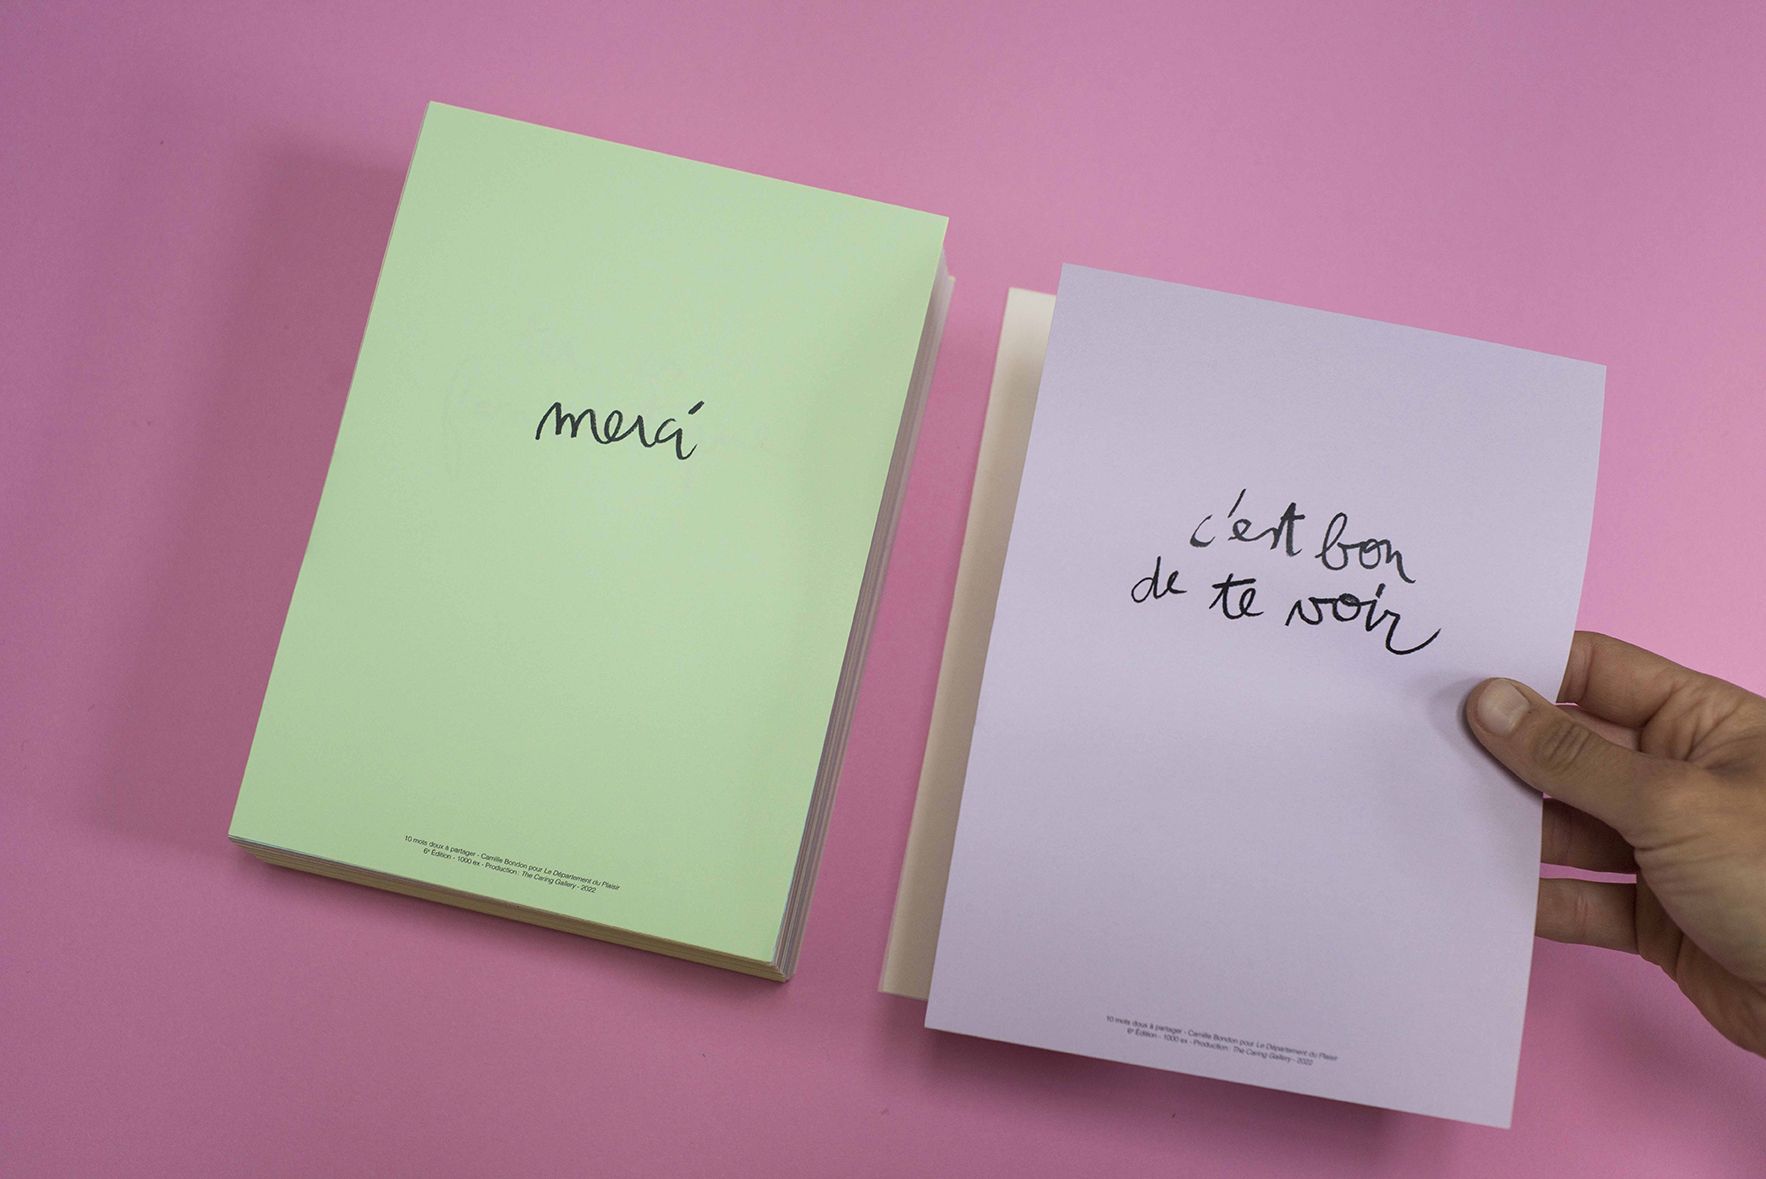 merci
10 mots doux à partager - Camille Bondon pour Le Département du Plaisir
6e Édition - 1000 ex - Production : The Caring Gallery - 2022
c'est bon
de te voir
10 mots doux à partager - Camille Bondon pour Le Département du Plaisir
6e Édition - 1000 ex - Production : The Caring Gallery - 2022